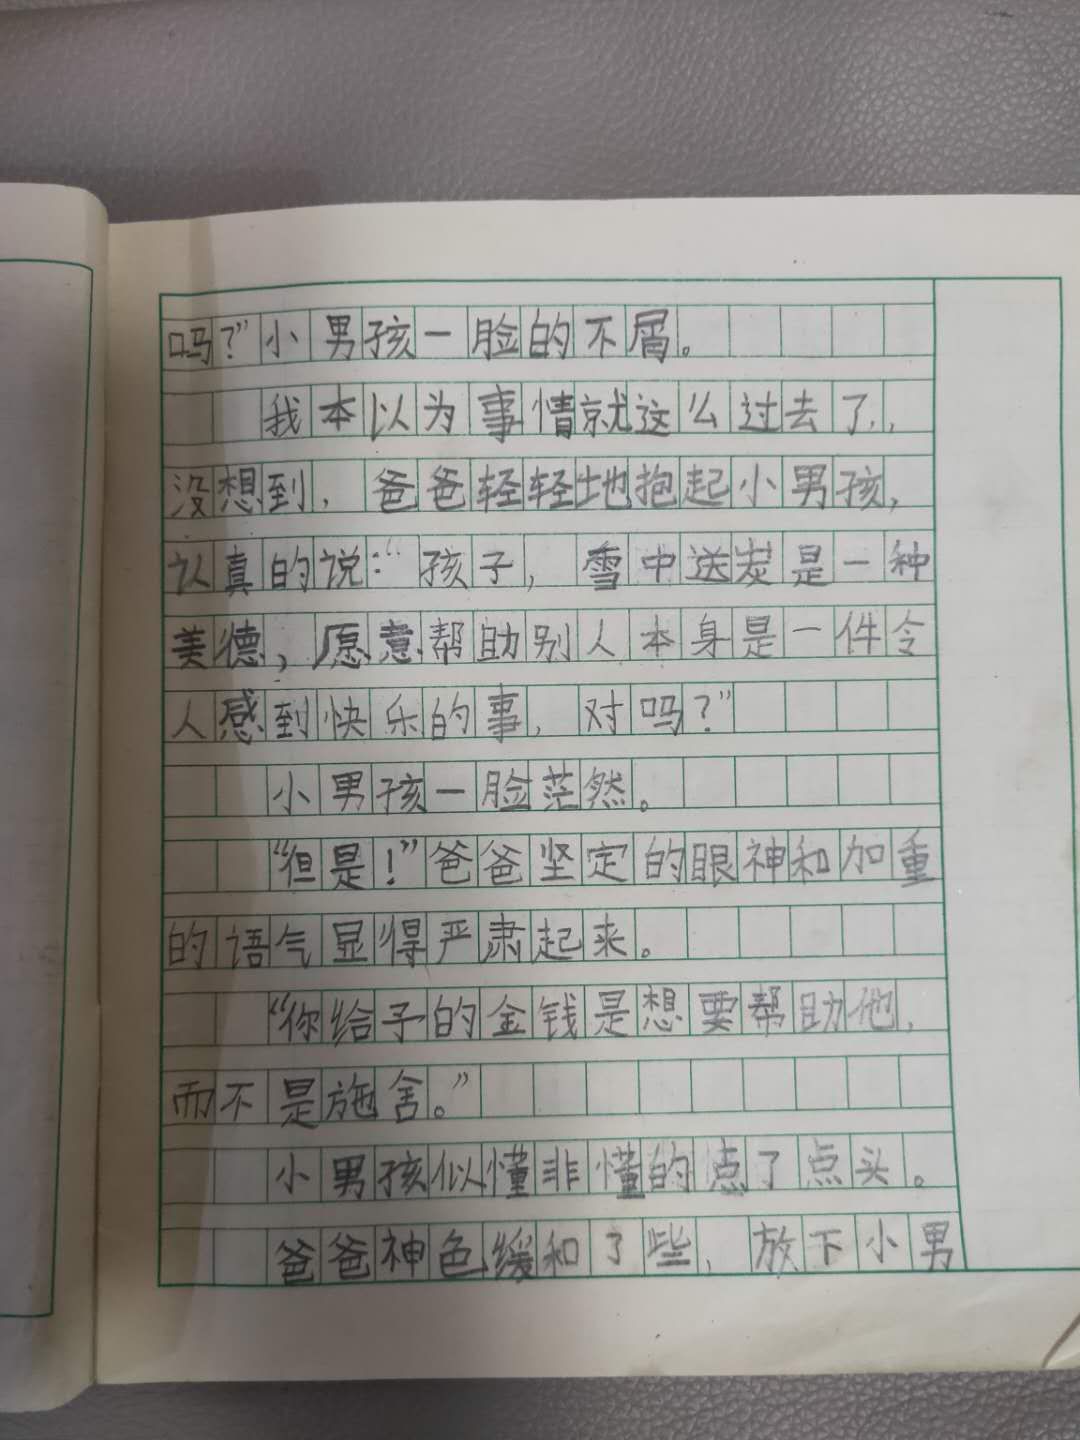 吗？”小男孩一脸的不屑。
我本以为事情就这么过去了，
没想到，爸爸轻轻地抱起小男孩，
认真的说：“孩子，雪中送炭是一种
美德，愿意帮助别人本身是一件令
人感到快乐的事，对吗？”
小男孩一脸茫然。
“但是！”爸爸坚定的眼神和加重
的语气显得严肃起来。
“你给予的金钱是想要帮助他，
而不是施舍。”
小男孩似懂非懂的点了点头。
爸爸神色缓和了些，放下小男